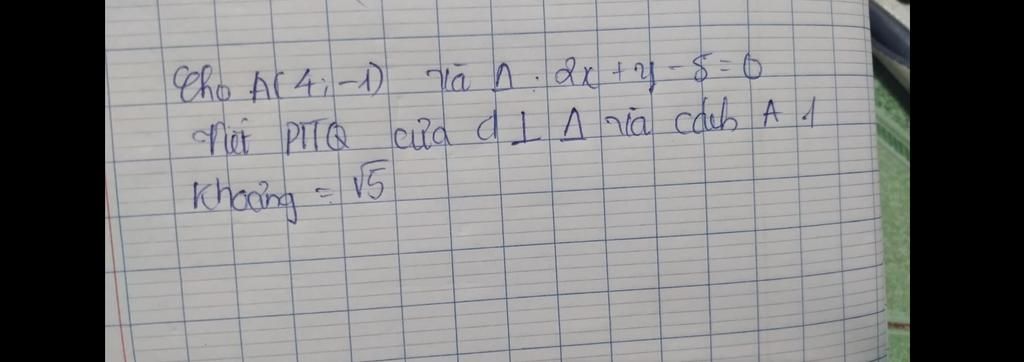 Cho A(4;-1) và Δ: 2x + y - 5 = 0
Viết PTTQ của d ⊥ Δ và cách A 1
Khoảng = √5